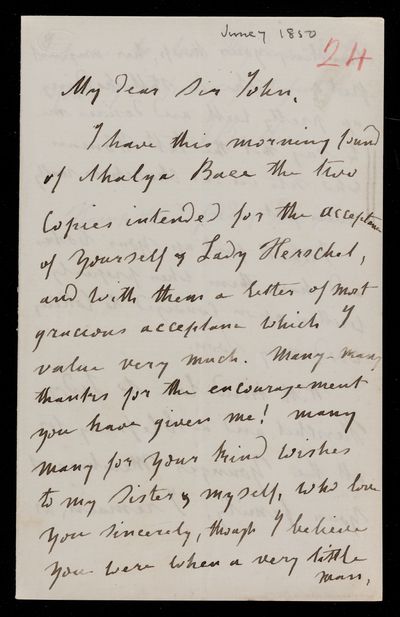 June 7 1850
24
My dear Sir John,
I have this morning found
of Ahalya Baee the two
Copies intended for the acceptance
of Yourself & Lady Herschel,
and with them a letter of most
gracious acceptance which I
value very much. Many-many
thanks for the encouragement
you have given me! many
many for your kind wishes
to my Sister & myself, who love
you sincerely, though I believe
you were when a very little
man,